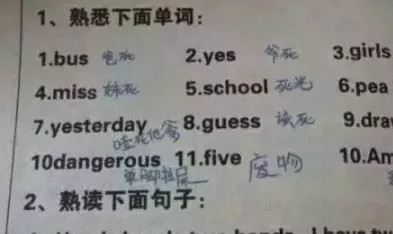 1、熟悉下面单词:
1.bus 爸死 2.yes 爷死 3.girls
4.miss 妹死 5.school 死光 6.pea
7.yesterday 8.guess 该死 9.dra
10dangerous 单脚拉屎 11.five 废物 10.Am
2、熟读下面句子: